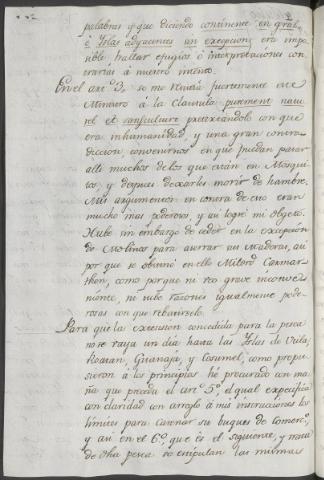 palabras y que diciendo continente en gral.
é Yslas adyacentes sin excepcion, era impo-
sible hallar efugios ó interpretaciones con-
trarias á nuestro intento.
En el art.º 3, se me resistia fuertemente este
Ministro á la Clausula purement natu-
rel et sans culture pretextandolo con que
era inhumanidad, y una gran contra-
diccion, convenirnos en que puedan parar
alli muchos de los que están en Mosqui-
tos, y despues dexarlos morir de hambre.
Mis argumentos en contra de eso eran
mucho mas poderosos, y asi logré mi objeto.
Hube sin embargo de ceder en la excepcion
de Molinos para aserrar sus Maderas, asi
por que se obstinó en ello Milord Carmar-
then, como porque ni veo grave inconve-
niente, ni tube razones igualmente pode-
rosas con que rebatirselo.
Para que la extension concedida para la pesca
no se vaya un dia hasta las Yslas de
Roatan, Guanaja, y Cosumel, como propu-
sieron á los principios hé procurado con ma-
ña que preceda el art.º 5º, el qual especifica
con claridad con arreglo á mis instrucciones los
limites para carenar sus buques de Comercº,
y asi en el 6º, que es el siguiente, y trata
de dha pesca se estipulan las mismas